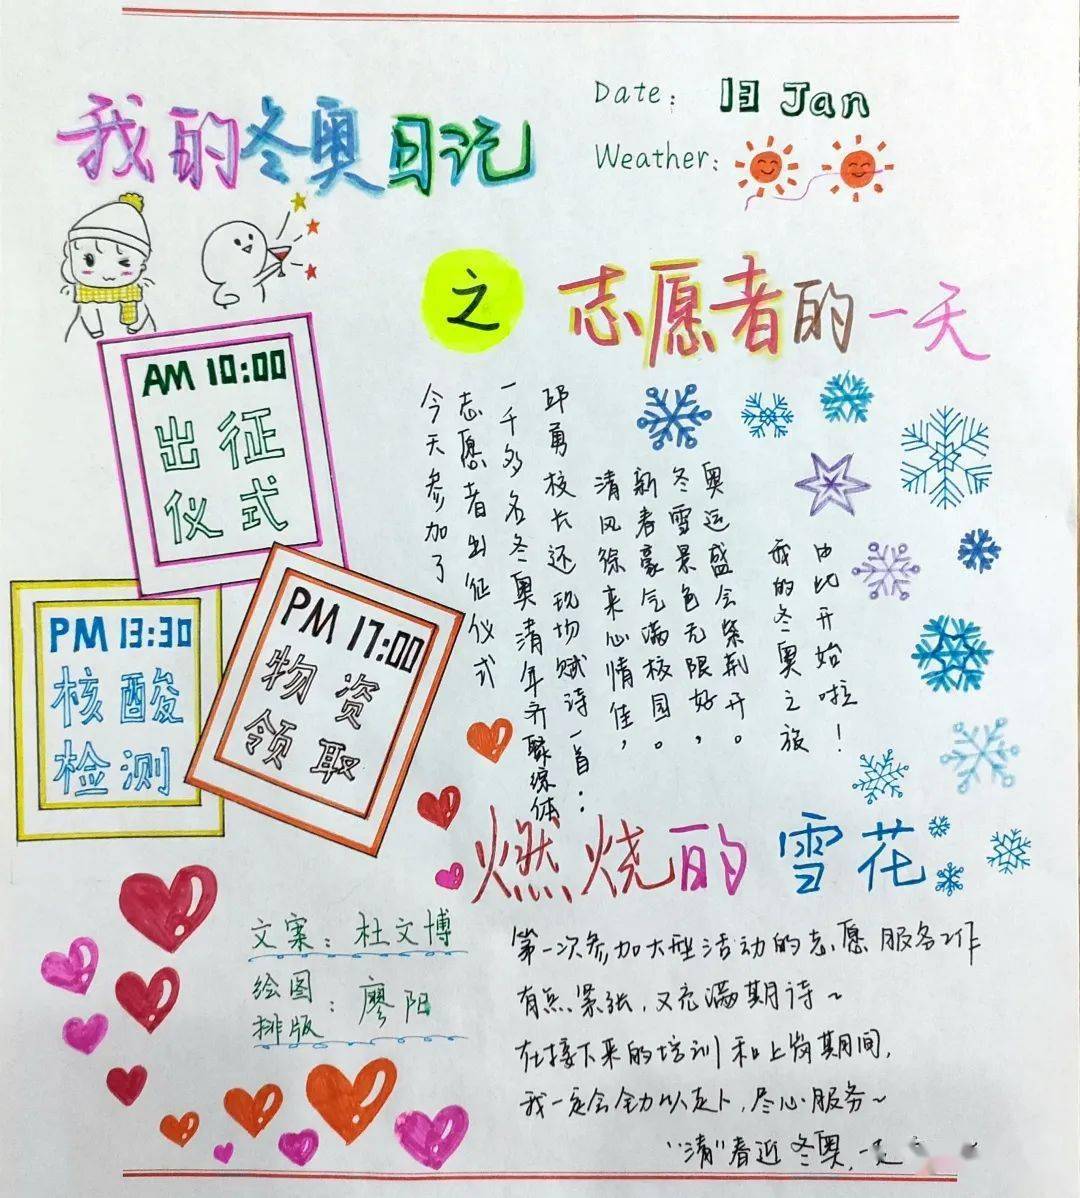 我的冬奥日记
Date： 13 Jan
Weather：
之
志愿者的一天
AM 10:00
出征
仪式
PM 13:30
核酸
检测
PM 17:00
物资
领取
今天参加了
志愿者出征仪式
一千多名冬奥清年齐聚综体
邱勇校长还现场赋诗一首：
清风徐来心情佳，
新春豪气满校园。
冬雪景色无限好，
奥运盛会紫荆开。
我的冬奥之旅
由此开始啦！
燃烧的雪花
文案：杜文博
绘图
排版：廖阳
第一次参加大型活动的志愿服务工作
有点紧张，又充满期待~
在接下来的培训和上岗期间，
我一定会全力以赴，尽心服务~
“清”春近冬奥，一